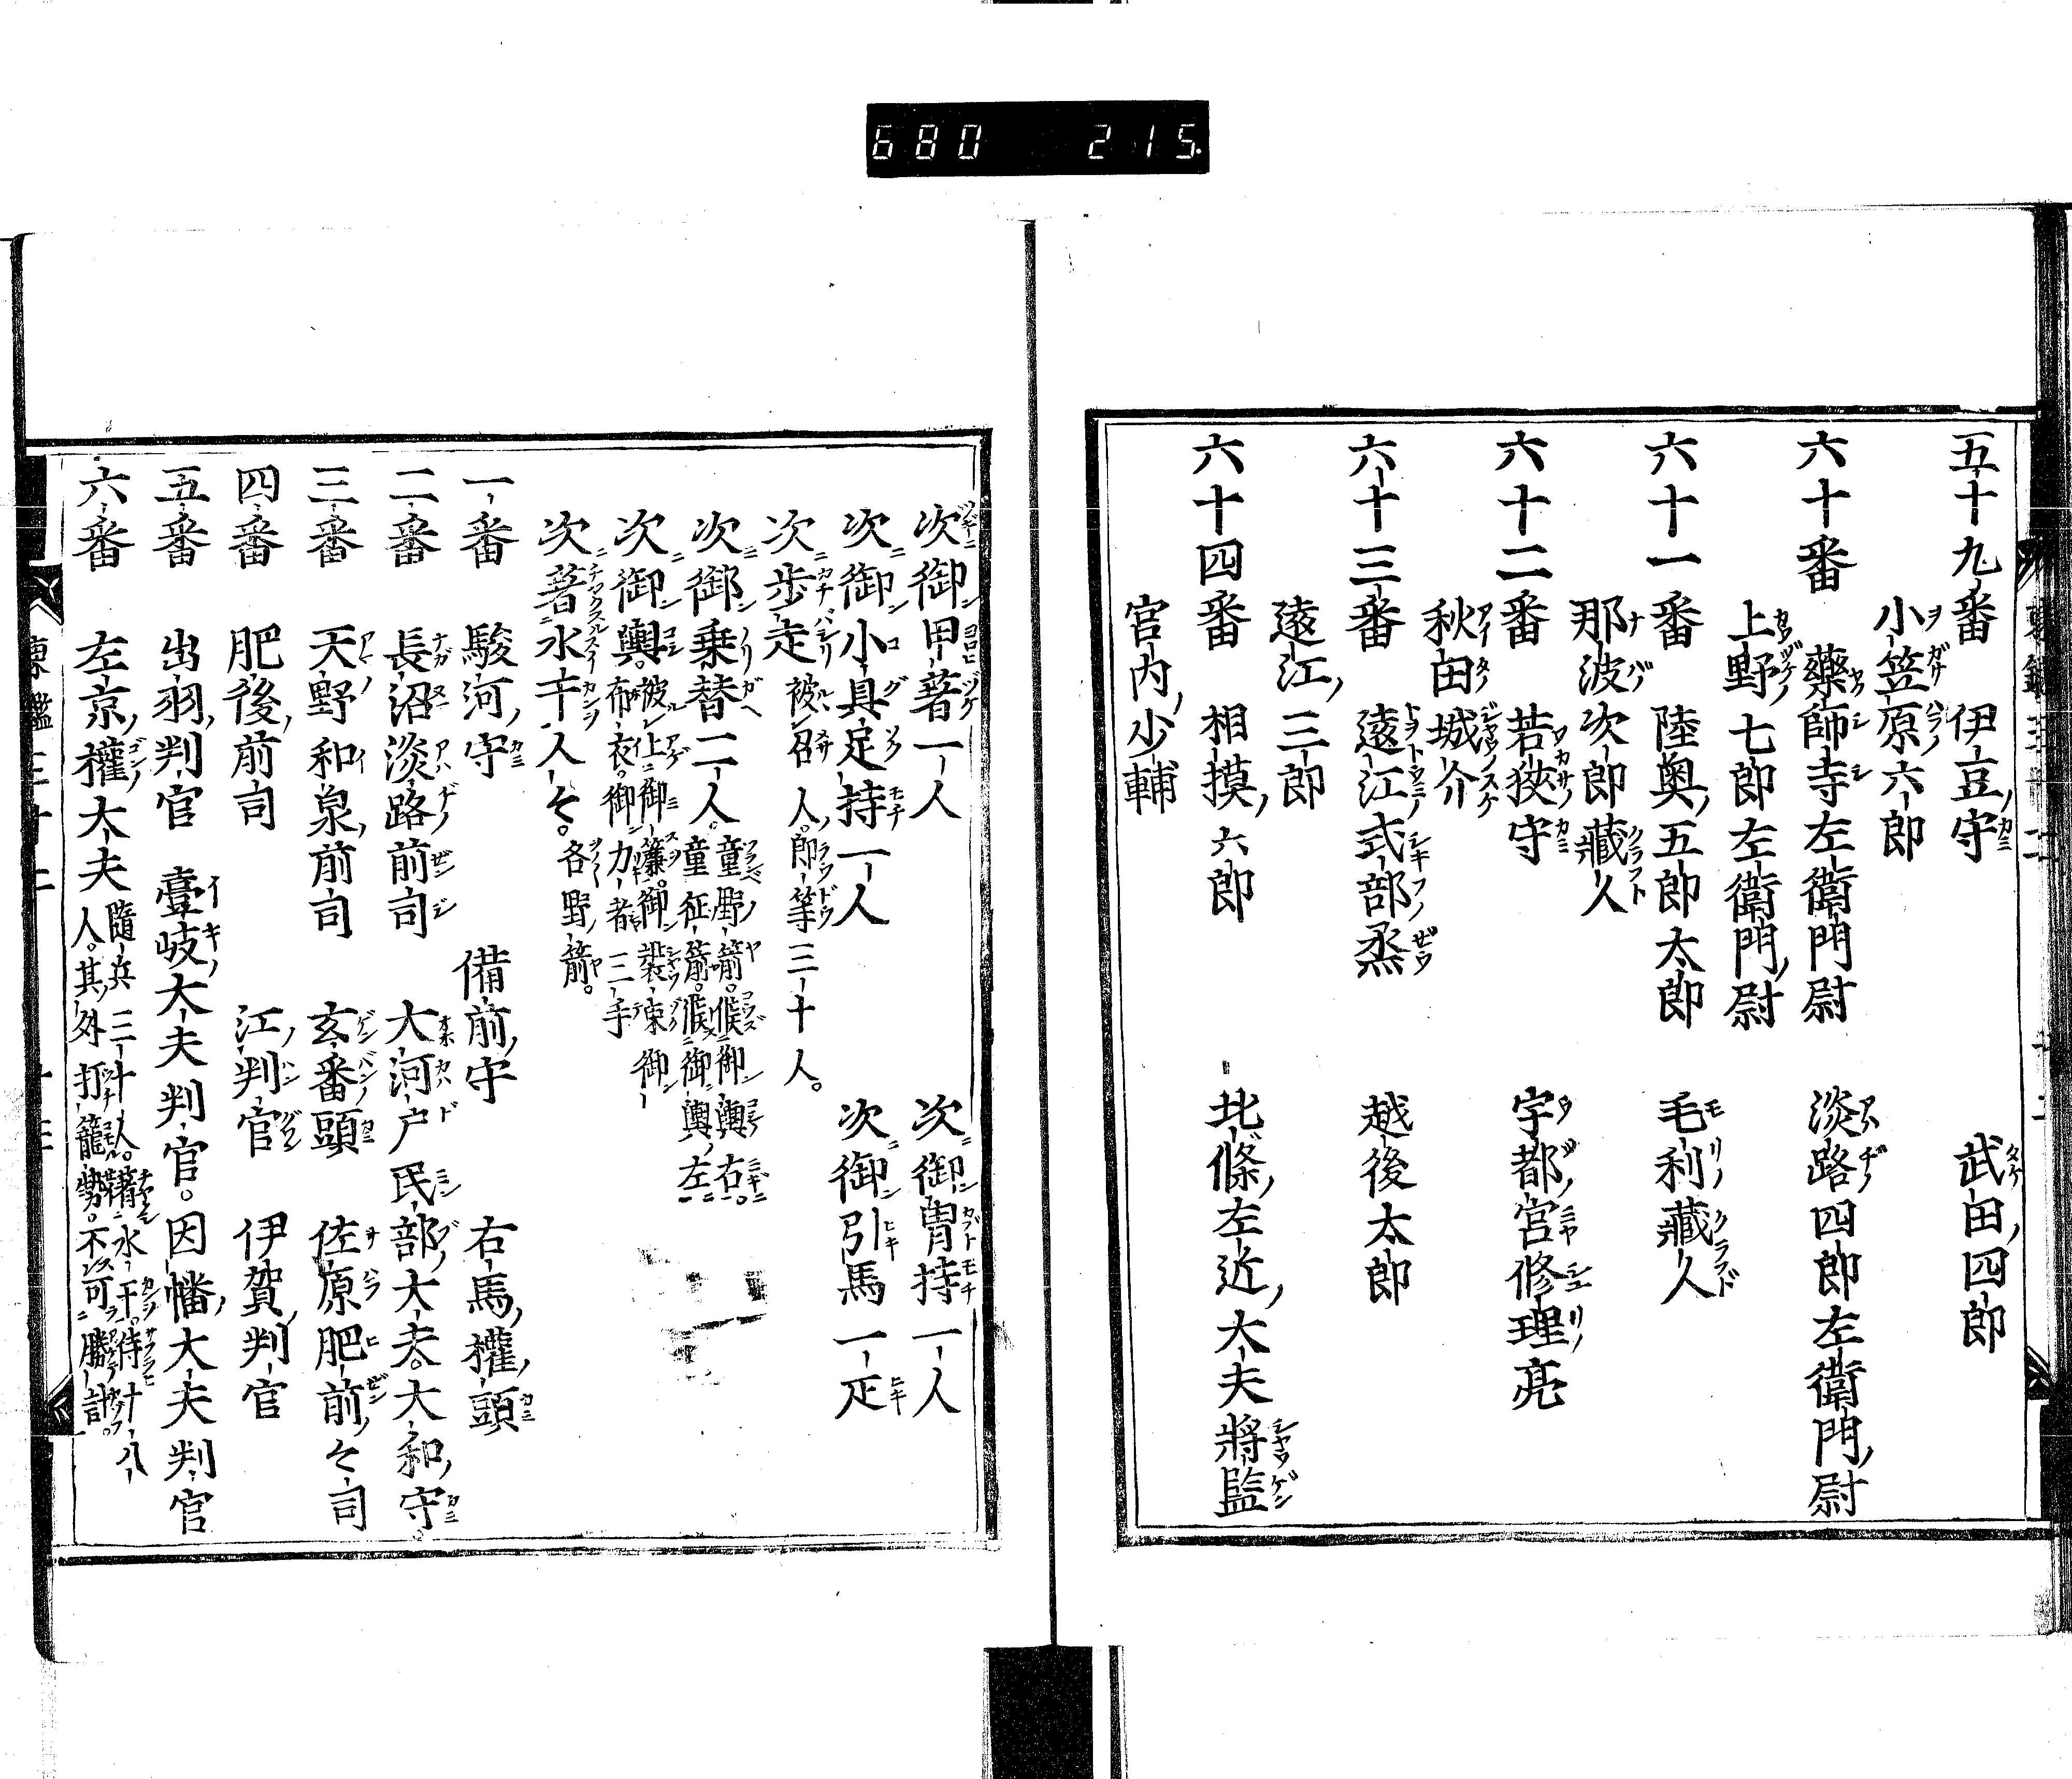 680 215
五十九番 伊豆守 武田四郎
小笠原六郎
六十番 藥師寺左衞門尉 淡路四郎左衞門尉
上野七郎左衞門尉
六十一番 陸奥五郎太郎 毛利藏人
那波次郎藏人
六十二番 若狹守 宇都宮修理亮
秋田城介
六十三番 遠江式部烝 越後太郎
遠江三郎
六十四番 相摸六郎 北條左近大夫將監
宮内少輔
次御甲著一人 次御冑持一人
次御小具足持一人 次御引馬一疋
次歩走 被召人郎等三十人。
次御乗替二人。童野箭。候御輿右。
童征箭。候御輿左
次御輿。被上御簾。御裝束御
布衣。御力者三手
次著水干人々。各野箭。
一番 駿河守 備前守 右馬權頭
二番 長沼淡路前司 大河戸民部大夫。大和守。
三番 天野和泉前司 玄番頭 佐原肥前々司
四番 肥後前司 江判官 伊賀判官
五番 出羽判官 壹岐大夫判官。因幡大夫判官
六番 左京權大夫 隨兵三十人。著水干。侍十八
人。其外打籠勢。不可勝計。
東鑑三十二